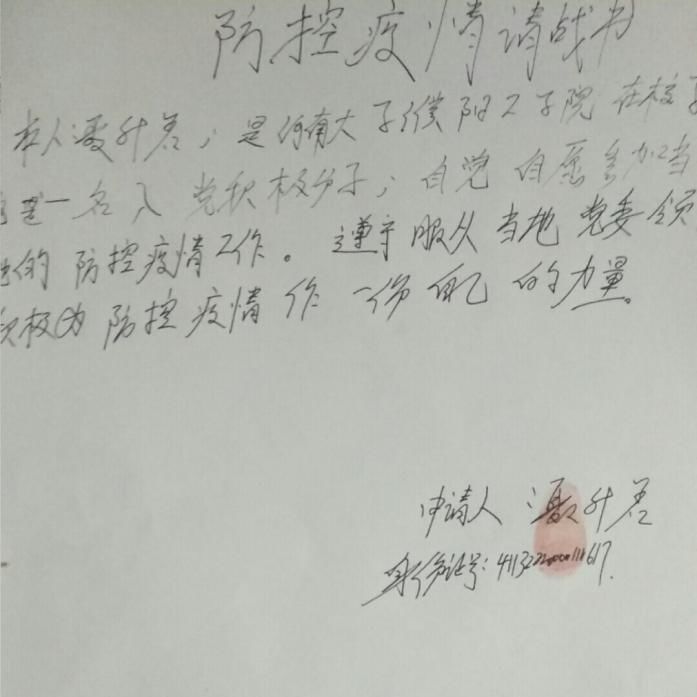 防控疫情请战书
本人聂升君，是河南大学濮阳工学院在校
是一名入党积极分子，自觉自愿参加当
地的防控疫情工作。遵守服从当地党委领
积极为防控疫情作一份自己的力量。
申请人
身份证号：